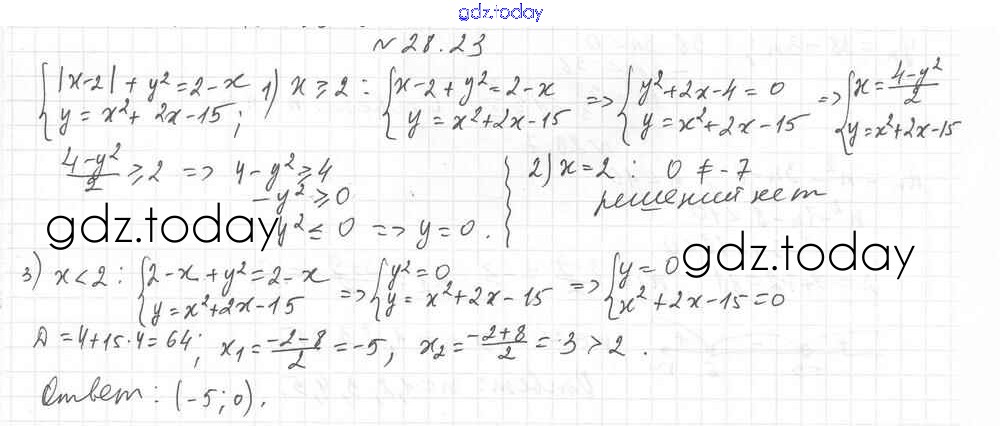 gdz.today
№ 28.23
{ |x-2| + y² = 2-x
y = x² + 2x-15 ; 1) x ≥ 2 : { x-2+y² = 2-x
y = x²+2x-15 => { y²+2x-4 = 0
y = x²+2x-15 => { x = (4-y²)/2
y = x²+2x-15
(4-y²)/2 ≥ 2 => 4-y² ≥ 4
-y² ≥ 0
y² ≤ 0 => y = 0 .
2) x = 2 : 0 ≠ -7
решений нет
gdz.today
gdz.today
3) x < 2 : { 2-x+y² = 2-x
y = x²+2x-15 => { y² = 0
y = x²+2x-15 => { y = 0
x²+2x-15 = 0
D = 4+15·4 = 64 ; x₁ = (-2-8)/2 = -5 , x₂ = (-2+8)/2 = 3 > 2 .
Ответ : (-5 ; 0) .